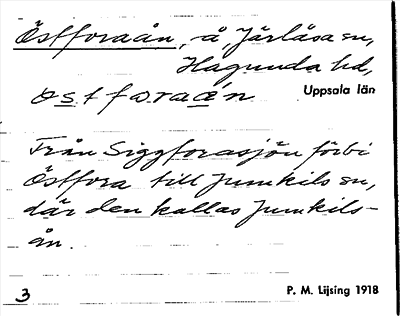 Östforaån, å, Järlåsa sn,
Hagunda hd,
Uppsala län
östforaá̱n
Från Siggforasjön förbi
Östfora till Jumkils sn,
där den kallas Jumkils-
ån.
3
P. M. Lijsing 1918